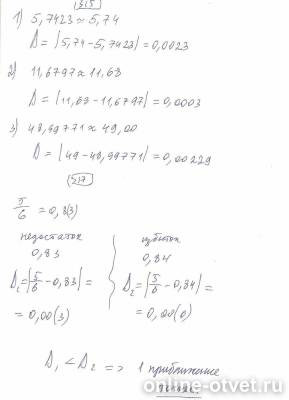 515
1) 5,7423 ≈ 5,74
Δ = |5,74 - 5,7423| = 0,0023
2) 11,6797 ≈ 11,68
Δ = |11,68 - 11,6797| = 0,0003
3) 48,99771 ≈ 49,00
Δ = |49 - 48,99771| = 0,00229
517
5/6 = 0,8(3)
недостаток
0,83
Δ₁ = |5/6 - 0,83| =
= 0,00(3)
избыток
0,84
Δ₂ = |5/6 - 0,84| =
= 0,00(6)
Δ₁ < Δ₂ => 1 приближение
точнее
online-otvet.ru